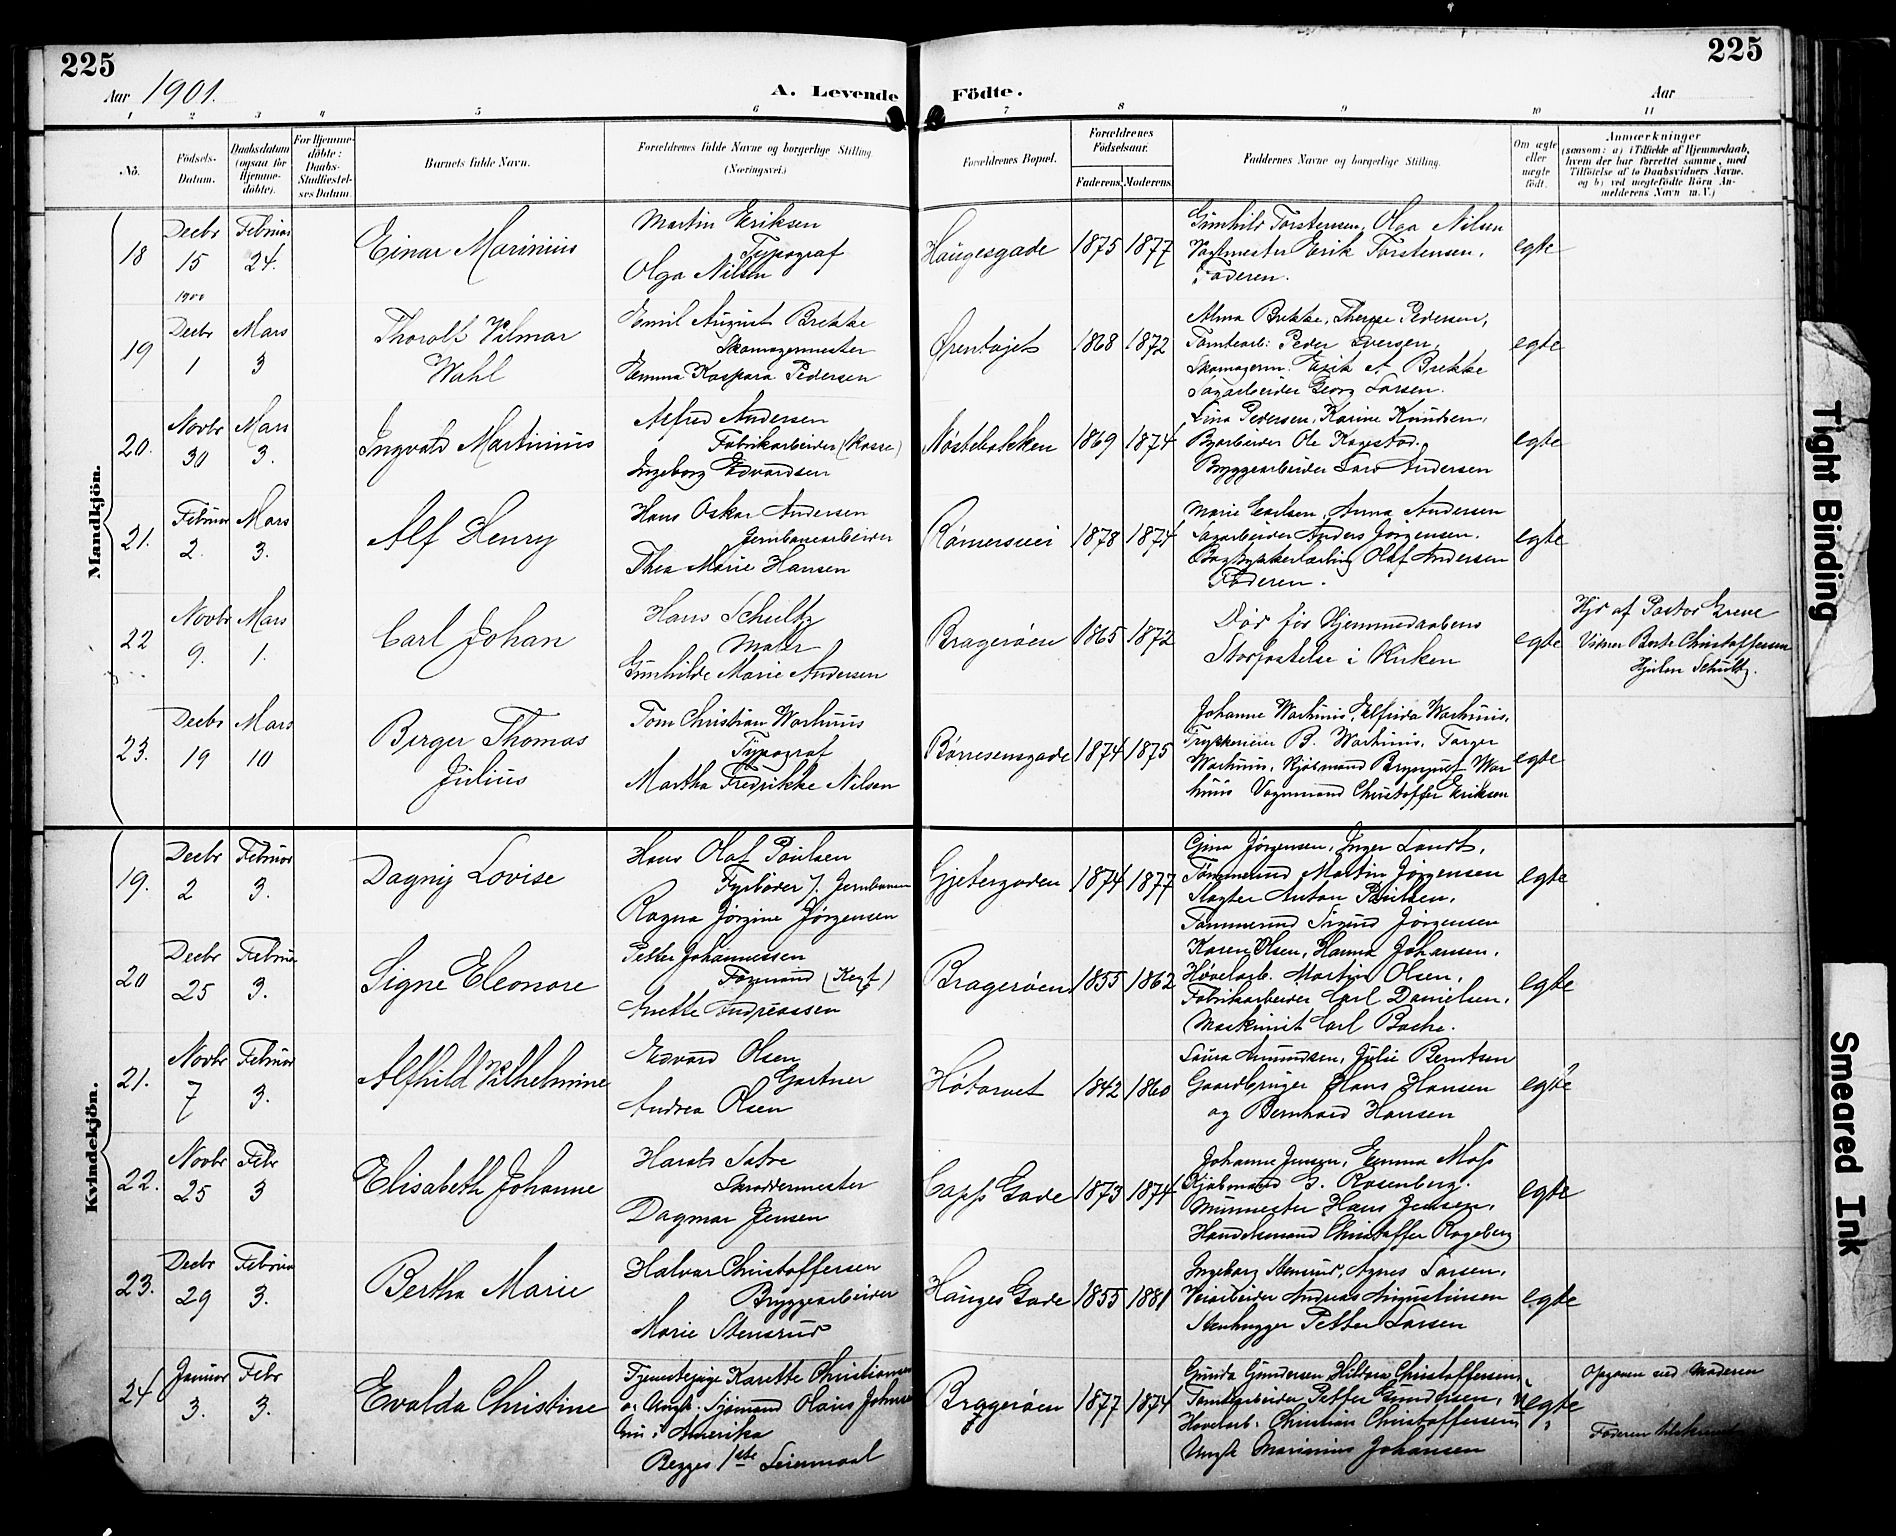 225
Aar 1901.
A. Levende
Födte.
225
Aar
1 2 3 4 5 6 7 8 9 10 11
No.
Födsels-Datum.
Daabsdatum (ogsaa for Hjemme-döbte).
For Hjemme-döbte: Daabs-Stadfæstel-ses Datum.
Barnets fulde Navn.
Forældrenes fulde Navne og borgerlige Stilling (Næringsvei.)
Forældrenes Bopæl.
Forældrenes Födselsaar.
Faderens. Moderens.
Faddernes Navne og borgerlige Stilling.
Om ægte eller uægte födt.
Anmærkninger
(saasom: a) i Tilfælde af Hjemmedaab, hvem der har forrettet samme, med Tilföielse af to Daabsvidners Navne, og b) ved uegtefödte Börn An-melderens Navn m. V.)
Mandkjön.
18
Decbr 15 1900
Februar 24.
Einar Marinius
Martin Eriksen
Typograf
Olga Nilsen
Haugesgade
1875 1877
Gunhild Torstensen, Olga Nilsen
Vagtmester Erik Torstensen,
Faderen.
egte
19
Decbr 1
Mars 3
Thorolf Vilmar
Wahl
Emil August Brekke
Skomagermester
Emma Kaspara Pedersen
Ørentøjet
1868 1872
Alma Brekke, Therese Pedersen,
Tomtearb: Peder Iversen,
Skomagerm. Erik A Brekke
Sagarbeider Georg Larsen.
egte
20.
Novbr 30
Mars 3.
Ingvald Martinius
Alfred Andersen
Fabrikarbeider (Kasse)
Ingeborg Edvardsen
Nøstebakken
1869 1874
Lina Pedersen, Karine Knudsen,
Byarbeider Ole
Bryggearbeider Lars Andersen
egte
21.
Februar 2.
Mars 3.
Alf Henry
Hans Oskar Andersen
Jernbanearbeider
Thea Marie Hansen
Rømersvei
1878 1874
Marie Carlsen, Anna Andersen
Sagarbeider Anders Jörgensen.
Bogtrykkerlærling Olaf Andersen
Faderen.
egte
22
Novbr 9.
Mars 1.
Carl Johan
Hans Schultz
Maler
Gunhilde Marie Andersen
Bragerøen
1865 1872
Død før Hjemmedaabens
Stadfæstelse i Kirken
egte
Hjd af Pastor Greve
Vidner Berte Christoffersen
Schultz.
23.
Decbr 19
Mars 10
Birger Thomas
Julius
Tom Christian Warhuus
Typograf
Martha Fredrikke Nilsen
Børresensgade
1874 1875
Johanne Warhuus, Elfrida Warhuus,
Trykkerieier B. Warhuus, Torger
Warhuus, Kjøbmand Brynjulf War
huus Vognmand Christoffer Eriksen
egte
Kvindekjön.
19.
Decbr 2
Februar 3.
Dagny Lovise
Hans Olaf Paulsen
Fyrbøder v/. Jernbanen
Ragna Jörgine Jörgensen
Gjetergaden
1874 1877
Gina Jörgensen, Inger Landt,
Tømmermd Martin Jörgensen
Slagter Anton Paulsen,
Tømmermd Sigurd Jörgensen
egte
20
Decbr 25
Februar 3.
Signe Eleonore
Petter Johannessen
Formand
Anette Andreassen
Bragerøen
1855 1862
Karen Olsen, Hanna Johansen,
Høvelarb. Martin Olsen,
Fabrikarbeider Carl Danielsen,
Maskinist Carl Bache.
egte
21.
Novbr 7
Februar 3.
Alfhild Vilhelmine
Edvard Olsen
Gartner
Andrea Olsen
Høtorvet
1842 1860
Laura Amundsen, Julie Berntsen
Gaardbruger Hans Hansen
og Bernhard Hansen
egte
22.
Novbr 25
Febr 3
Elisabeth Johanne
Harald Sætre
Skræddermester
Dagmar Jensen
Capps Gade
1873 1874
Johanne Jensen, Emma Moss
Kjøbmand G. Rosenberg.
Murmester Hans Jensen,
Handelsmand Christoffer Rogeberg
egte
23.
Decbr 29
Februar 3.
Bertha Marie
Halvor Christoffersen
Bryggearbeider
Marie Stensrud
Hauges Gade
1855 1881
Ingeborg Stensrud, Agnes Larsen,
Veiarbeider Andreas Augustinsen
Stenhugger Petter Larsen
egte
24
Januar 3.
Febr 3.
Evalda Christine
Tjenestepige Karette Christiansen
o. Ungk. Sjömand Olaus Johnsen
i Amerika
Begges 1ste Leiermaal
Bragerøen
1877 1874
Gunda Gundersen Hilda Christoffersen,
Tomtearbeider Petter Gundersen,
Høvelarb. Christian Christoffersen,
Ungk Marinius Johansen
uegte
Opgaven ved Moderen
Faderen
Tight Binding
Smeared Ink